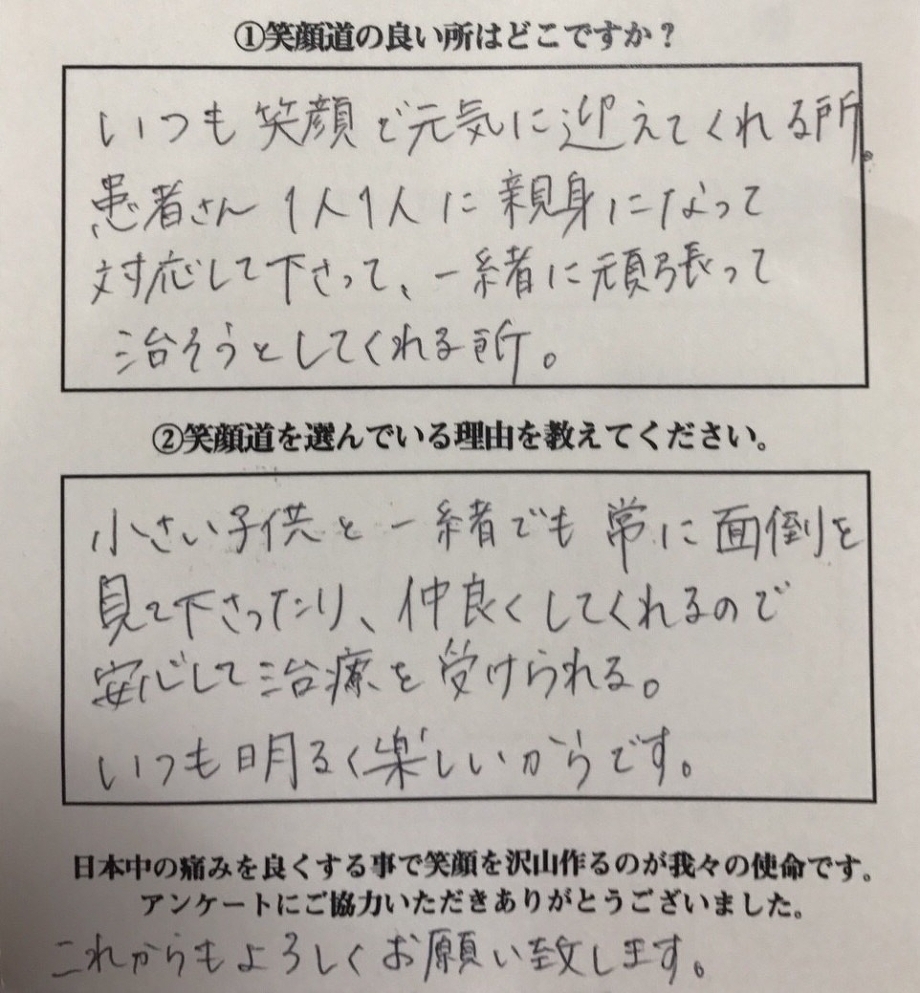 ①笑顔道の良い所はどこですか？
いつも笑顔で元気に迎えてくれる所。
患者さん1人1人に親身になって
対応して下さって、一緒に頑張って
治そうとしてくれる所。
②笑顔道を選んでいる理由を教えてください。
小さい子供と一緒でも常に面倒を
見て下さったり、仲良くしてくれるので
安心して治療を受けられる。
いつも明るく楽しいからです。
日本中の痛みを良くする事で笑顔を沢山作るのが我々の使命です。
アンケートにご協力いただきありがとうございました。
これからもよろしくお願い致します。